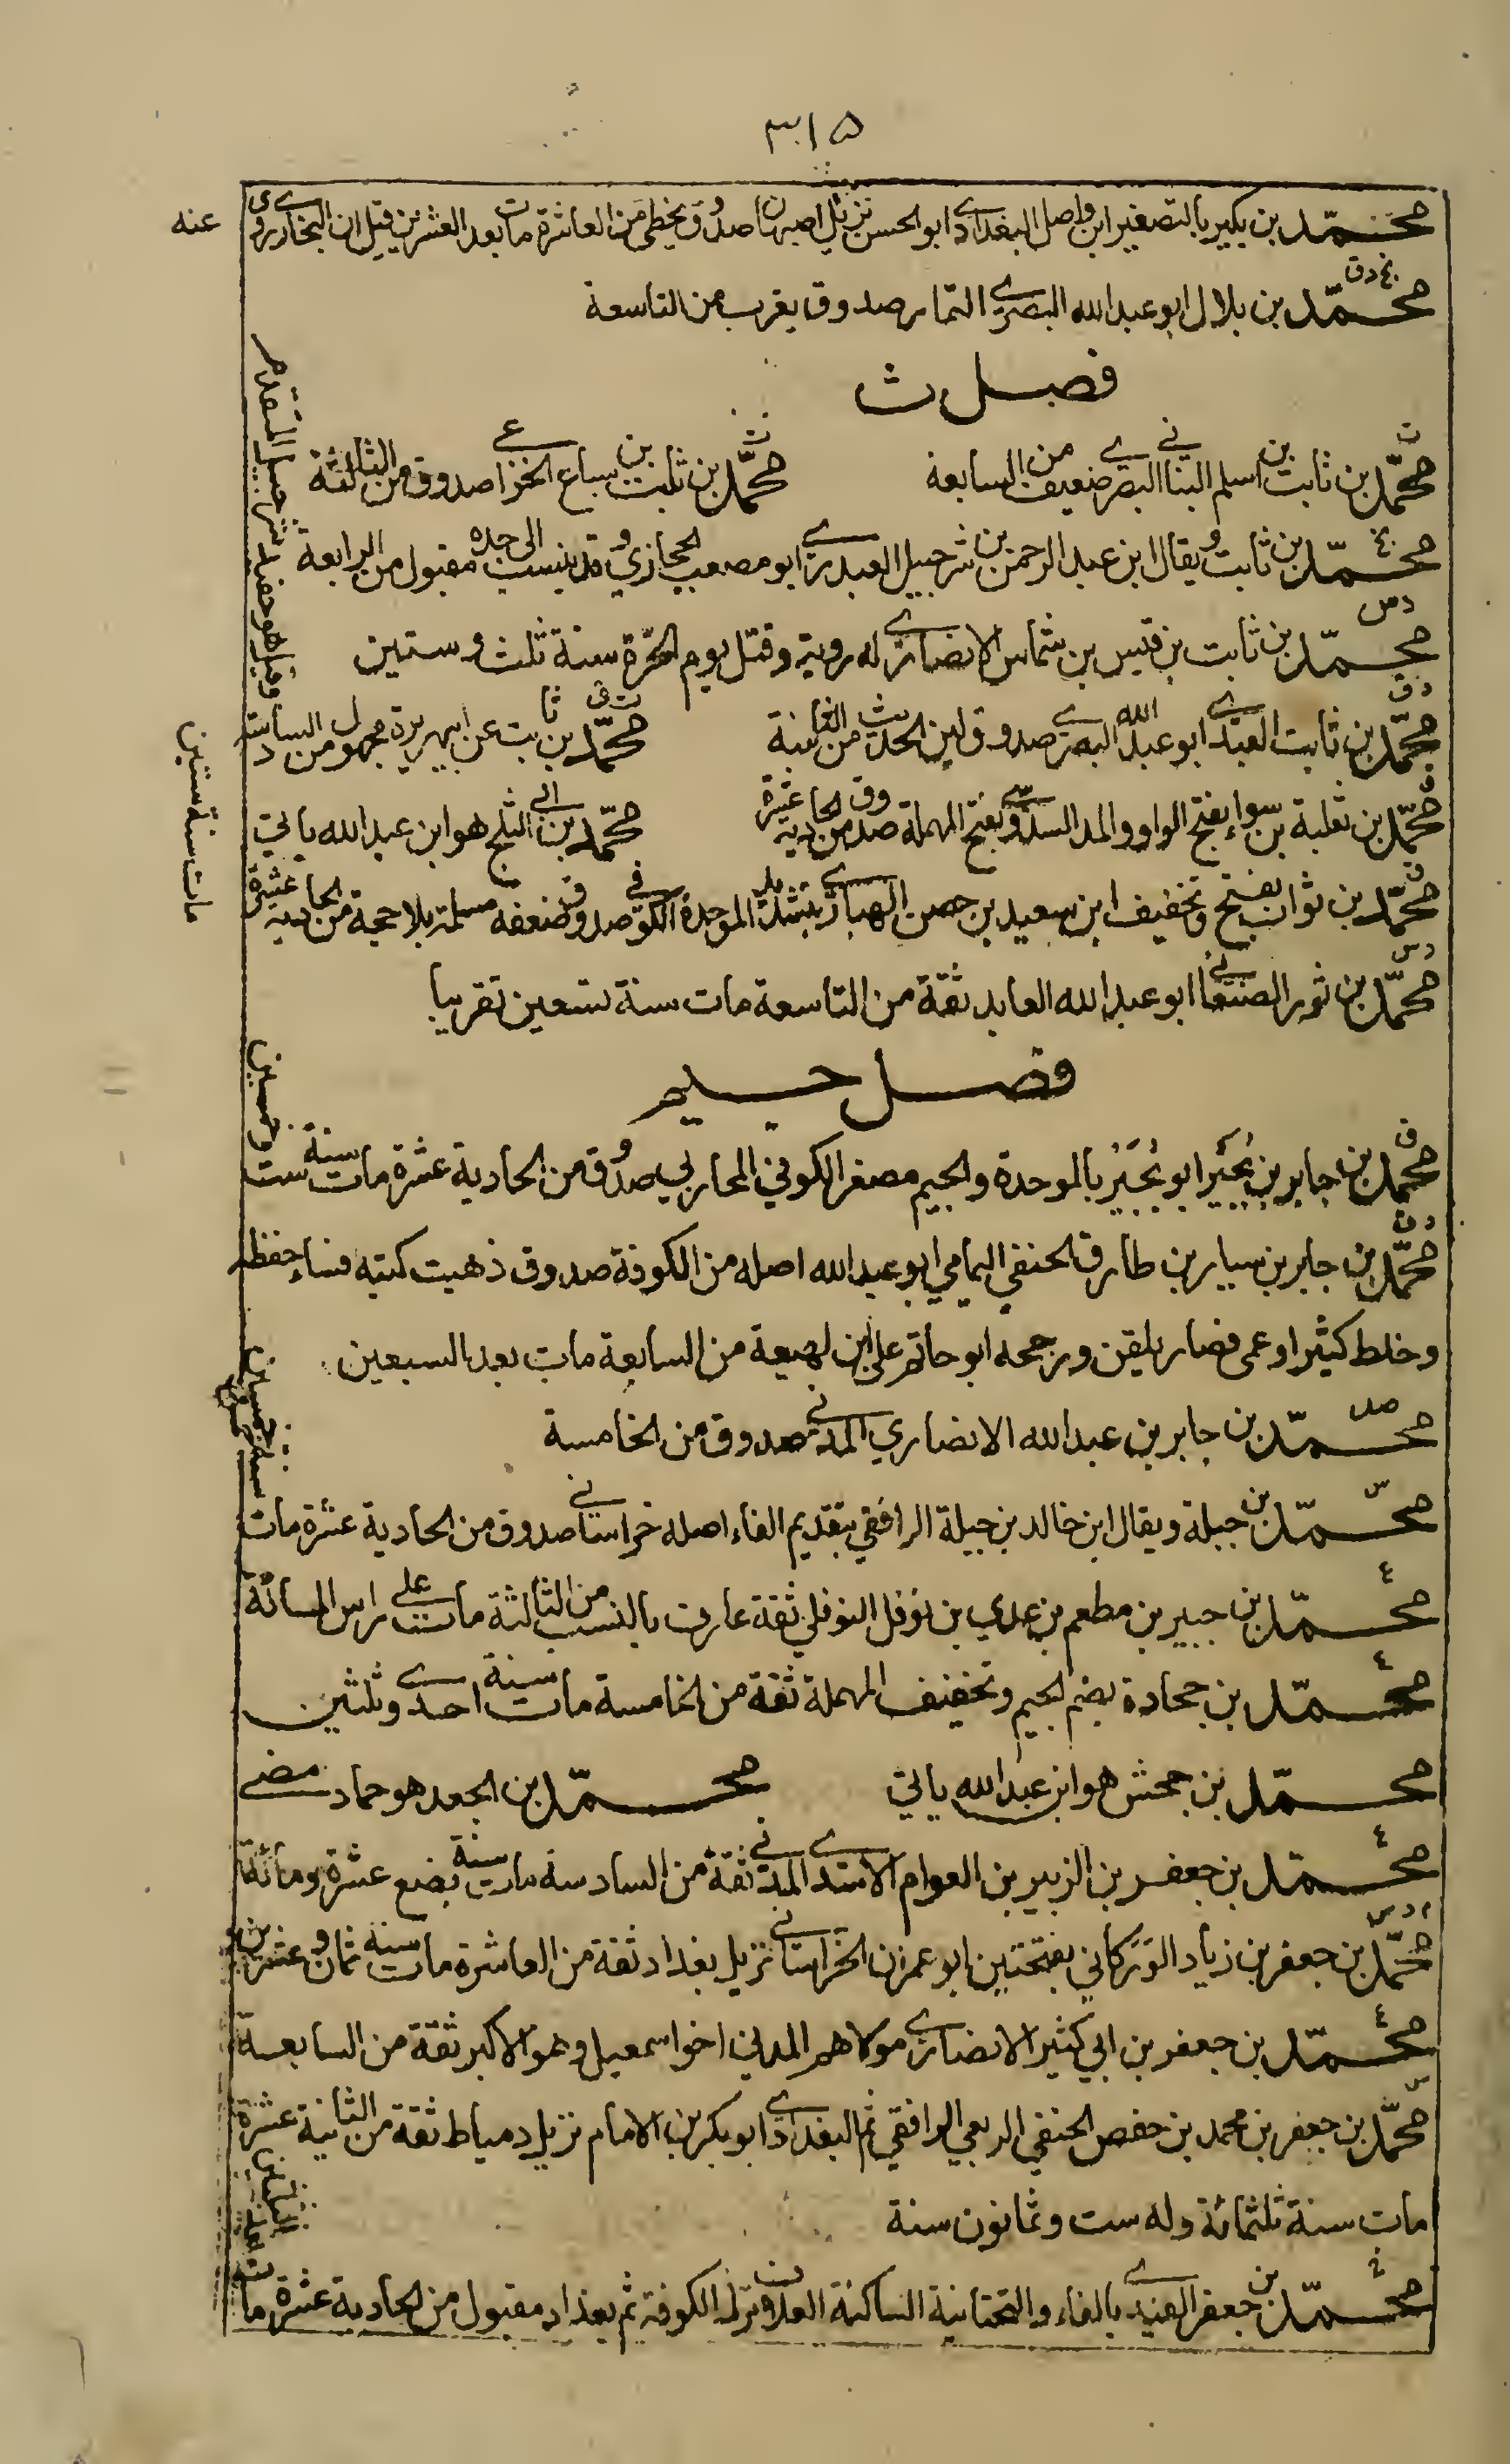 ٣١٥
محمد بن بكير بالتصغير ابن واصل البغدادي ابو الحسن نزيل اصبهان صدوق يخطئ من العاشرة مات بعد العشرين قيل ان البخاري روى
عنه
بخ د ق
محمد بن بلال ابو عبد الله البصري التمار صدوق يغرب من التاسعة
فصل ث
ت
محمد بن ثابت بن اسلم البناني البصري ضعيف من السابعة محمد بن ثابت بن سباع الخزاعي صدوق من الثالثة
محمد بن ثابت ويقال ابن عبد الرحمن بن شرحبيل العبدري ابو مصعب الحجازي وقد ينسب الى جده مقبول من الرابعة
د س
محمد بن ثابت بن قيس بن شماس الانصاري له روية وقتل يوم الحرة سنة ثلث وستين
د ق
محمد بن ثابت العبدي ابو عبد الله البصري صدوق لين الحديث من الثامنة محمد بن ثابت عن ابي هريرة مجهول من السادسة
وقيل هو حفيد شرحبيل المتقدم
محمد بن ثعلبة بن سواء بفتح الواو والمد السدوسي بفتح المهملة صدوق من الحادية عشرة محمد بن ابي الثلج هو ابن عبد الله ياتي
ق
محمد بن ثواب بفتح وتخفيف ابن سعيد بن حصن الهباري بتشديد الموحدة الكوفي صدوق ضعفه مسلمة بلا حجة من الحادية عشرة
مات سنة ستين
د س
محمد بن ثور الصنعاني ابو عبد الله العابد ثقة من التاسعة مات سنة تسعين تقريبا
فصل جيم
ق
محمد بن جابر بن بجير ابو بجير بالموحدة والجيم مصغر الكوفي المحاربي صدوق من الحادية عشرة مات سنة ست
وخمسين
د ق
محمد بن جابر بن سيار بن طارق الحنفي اليمامي ابو عبد الله اصله من الكوفة صدوق ذهبت كتبه فساء حفظه
وخلط كثيرا وعمى فصار يلقن ورجحه ابو حاتم على ابن لهيعة من السابعة مات بعد السبعين
صد
محمد بن جابر بن عبد الله الانصاري المدني صدوق من الخامسة
س
محمد بن جبلة ويقال ابن خالد بن جبلة الرافقي بتقديم الفاء اصله خراساني صدوق من الحادية عشرة مات
ع
محمد بن جبير بن مطعم بن عدي بن نوفل النوفلي ثقة عارف بالنسب من الثالثة مات على راس المائة
ع
محمد بن جحادة بضم الجيم وتخفيف المهملة ثقة من الخامسة مات سنة احدى وثلثين
محمد بن جحش هو ابن عبد الله ياتي محمد بن الجعد هو حماد مضى
ع
محمد بن جعفر بن الزبير بن العوام الاسدي المدني ثقة من السادسة مات سنة بضع عشرة ومائة
م د س
محمد بن جعفر بن زياد الوركاني بفتحتين ابو عمران الخراساني نزيل بغداد ثقة من العاشرة مات سنة ثمان وعشرين
ع
محمد بن جعفر بن ابي كثير الانصاري مولاهم المدني اخو اسمعيل وهو الاكبر ثقة من السابعة
س
محمد بن جعفر بن محمد بن حفص الحنفي الربعي الرافقي ثم البغدادي ابو بكر بن الامام نزيل دمياط ثقة من الثانية عشرة
مات سنة ثلثمائة وله ست وثمانون سنة
محمد بن جعفر الفيدي بالفاء والتحتانية الساكنة العلاف نزل الكوفة ثم بغداد مقبول من الحادية عشرة مات